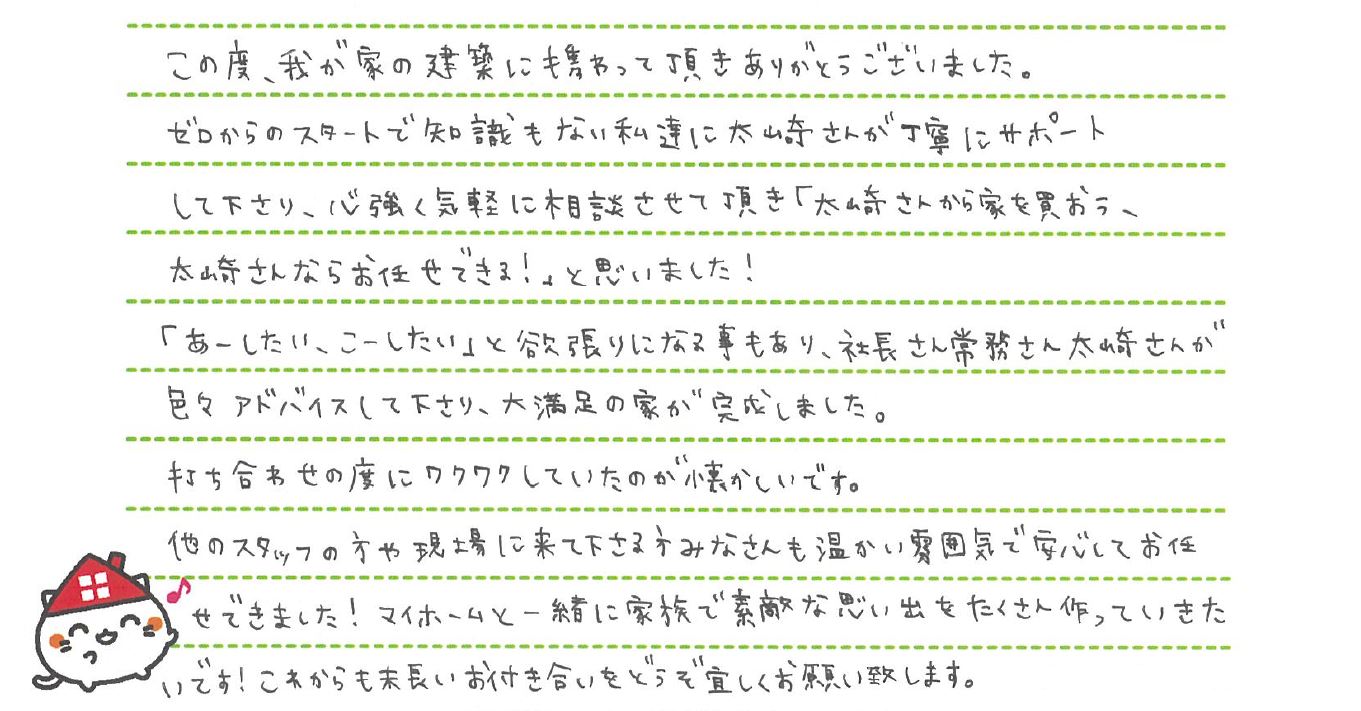 この度、我が家の建築に携わって頂きありがとうございました。
ゼロからのスタートで知識もない私達に太﨑さんが丁寧にサポート
して下さり、心強く気軽に相談させて頂き「太﨑さんから家を買おう、
太﨑さんならお任せできる!」と思いました!
「あーしたい、こーしたい」と欲張りになる事もあり、社長さん常務さん太﨑さんが
色々アドバイスして下さり、大満足の家が完成しました。
打ち合わせの度にワクワクしていたのが懐かしいです。
他のスタッフの方や現場に来て下さる方みなさんも温かい雰囲気で安心してお任
せできました!マイホームと一緒に家族で素敵な思い出をたくさん作っていきた
いです!これからも末長いお付き合いをどうぞ宜しくお願い致します。